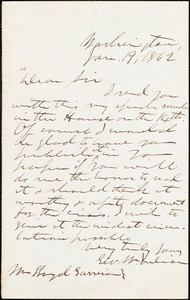 Washington,
Jan. 19, 1862
"Dear Sir
I send you
with this my speech made
in the House on the 14th.
Of course I would
be glad to have you
publish it in your
paper, if you would
do me the honor to
it & should think it
worthy & a document
for the crisis. I wish to
give it the widest circu-
lation possible
Very truly yours
Geo. W. Julian
Wm Lloyd Garrison